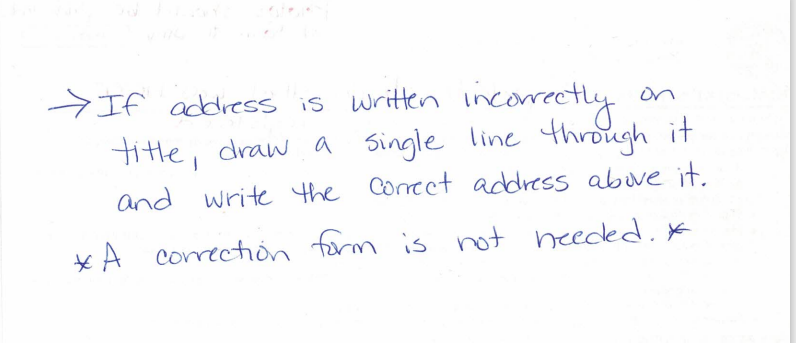 → If address is written incorrectly on
title, draw a single line through it
and write the correct address above it.
* A correction form is not needed. *